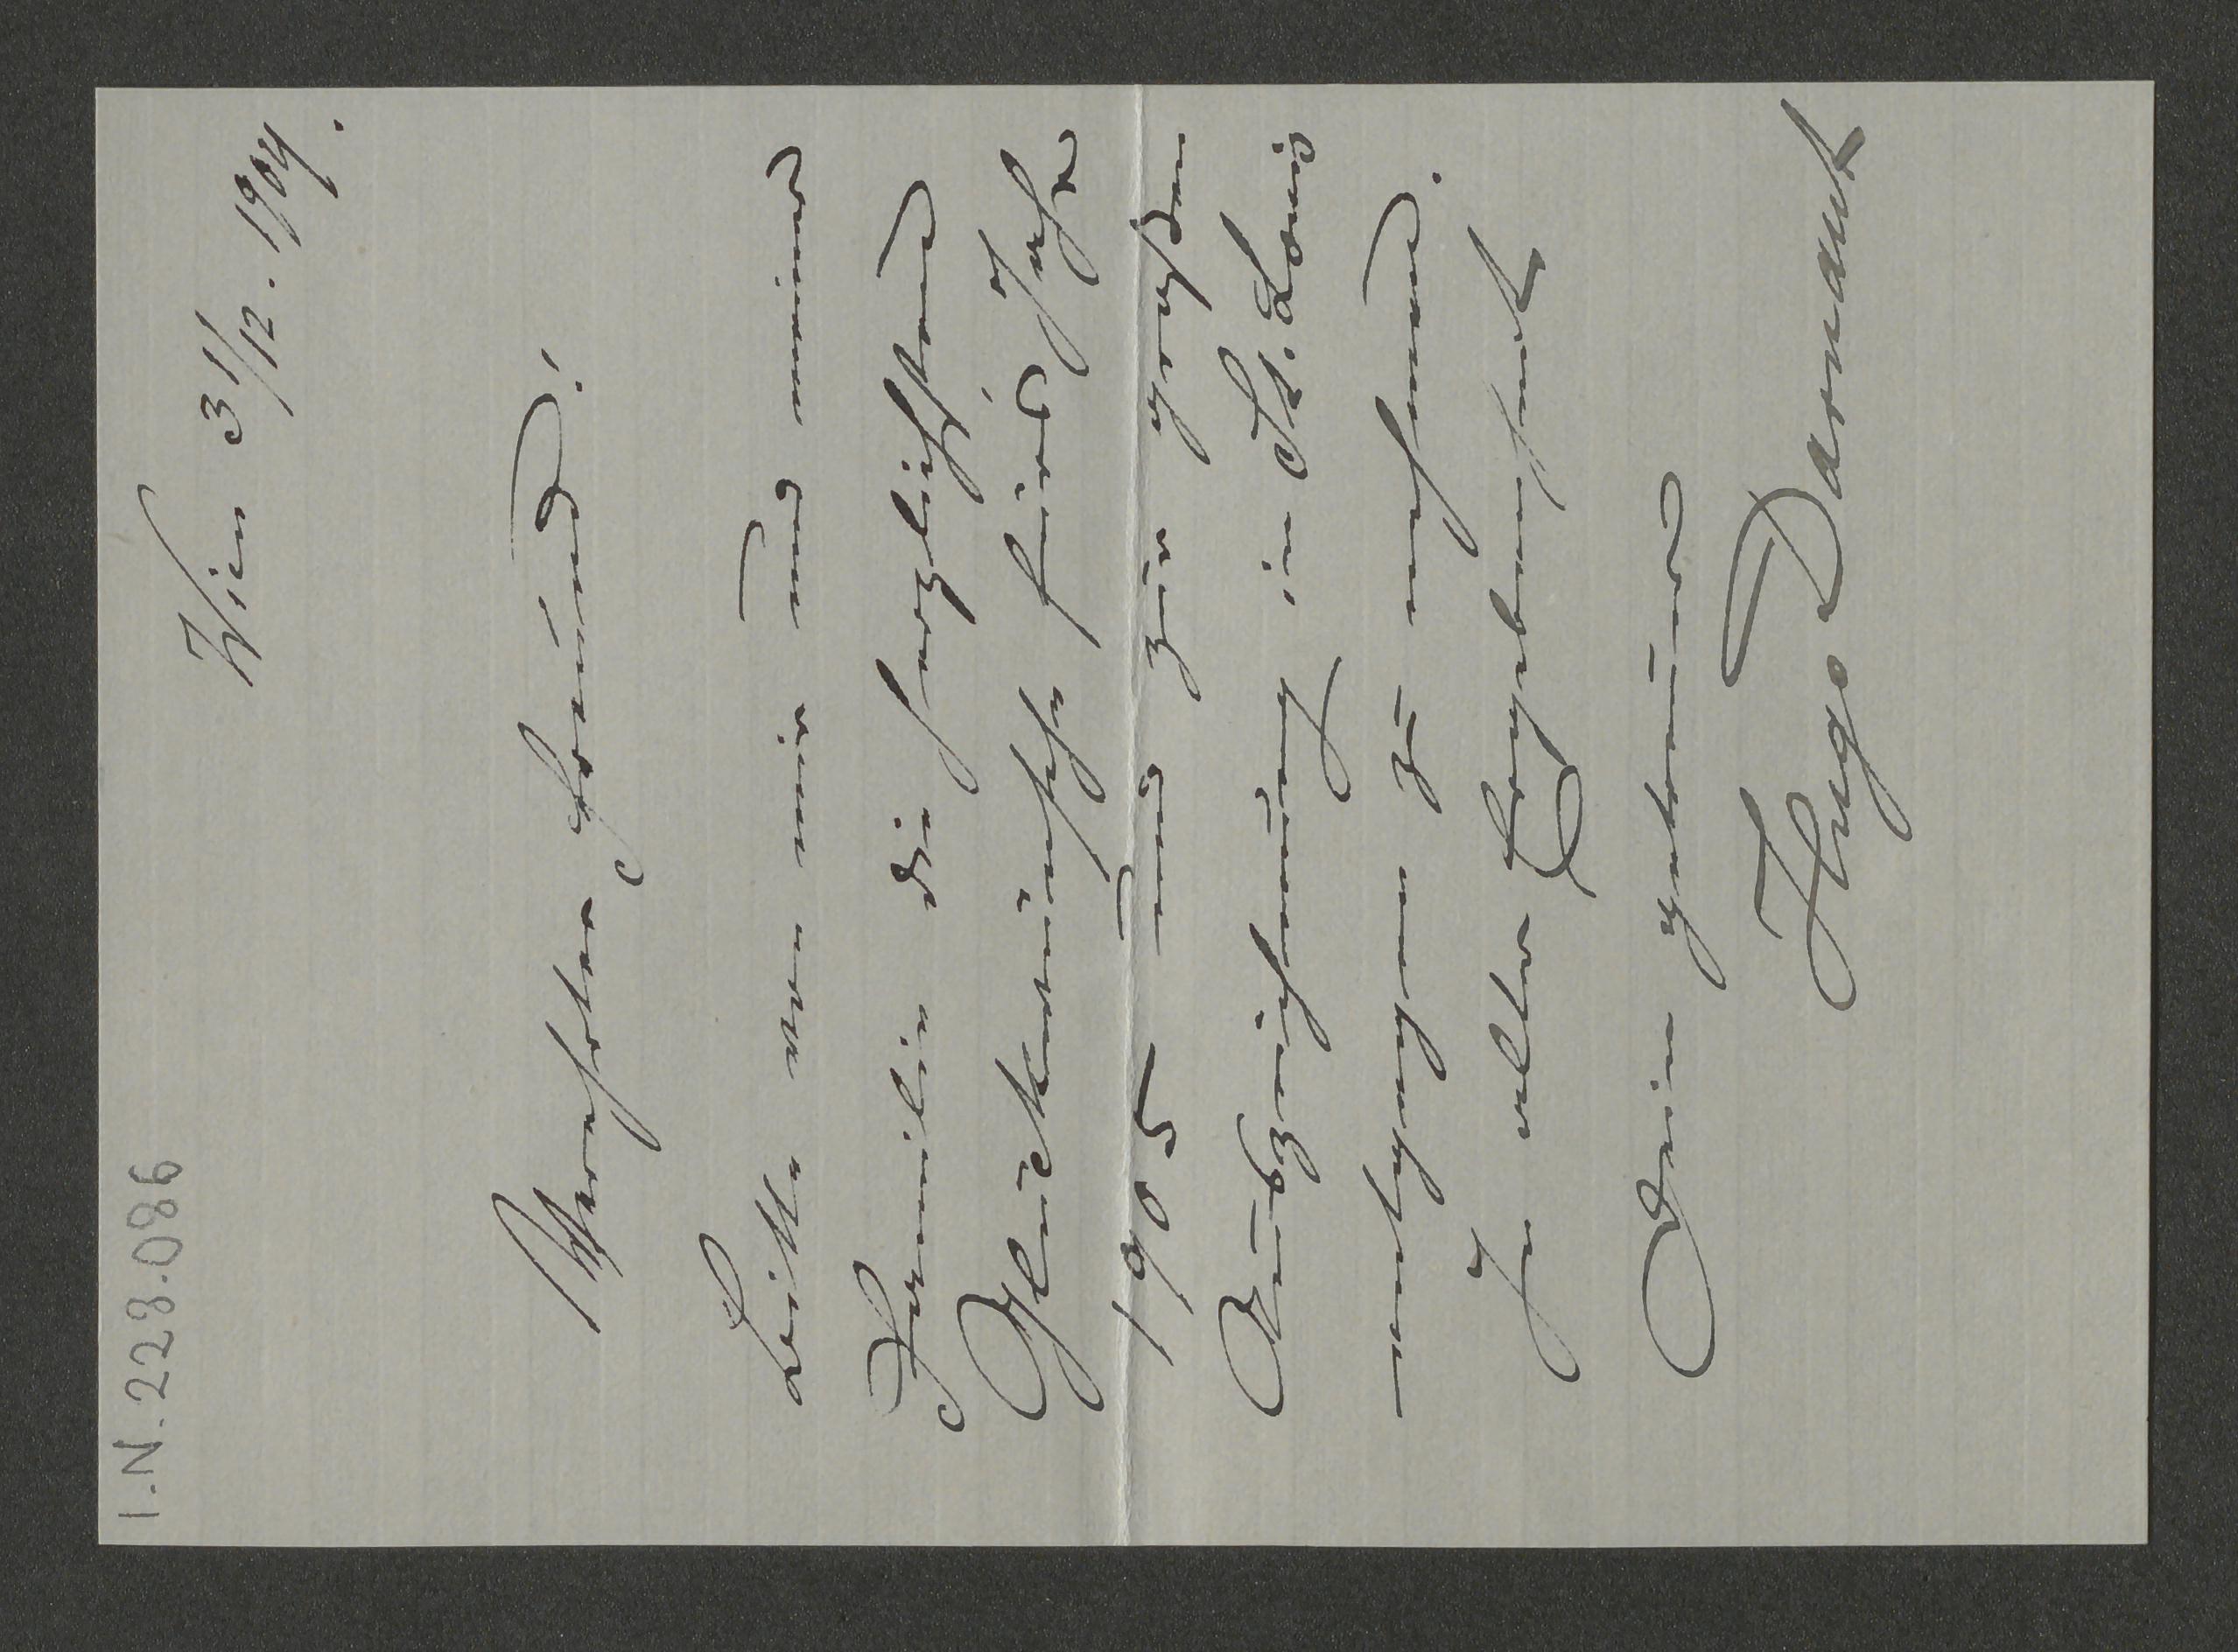 I.N. 228.086
Wien 31/12. 1904.
Verehrter Freund!
Bitte von mir und meiner
Familie die herzlichsten
Glückwünsche für's Jahr
1905 und zur großen
Auszeichnung in St. Louis
entgegen zu nehmen.
In alter Ergebenheit
Dein getreuer
Hugo Darnaut